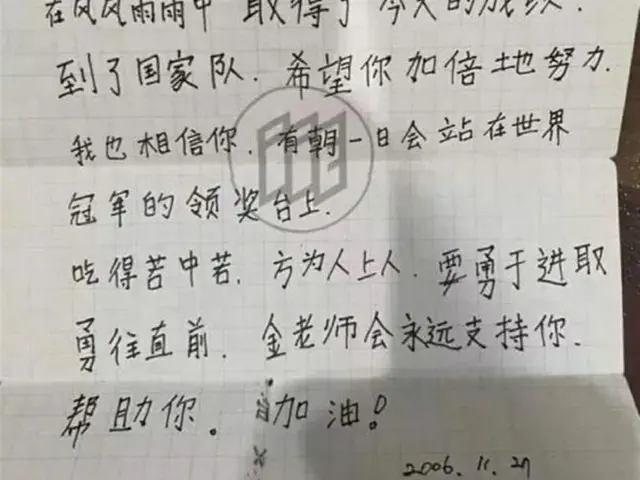 在风风雨雨中 取得了今天的成绩.
到了国家队. 希望你加倍地努力.
我也相信你. 有朝一日会站在世界
冠军的领奖台上.
吃得苦中苦. 方为人上人. 要勇于进取
勇往直前. 金老师会永远支持你.
帮助你。 加油!
2006. 11. 27